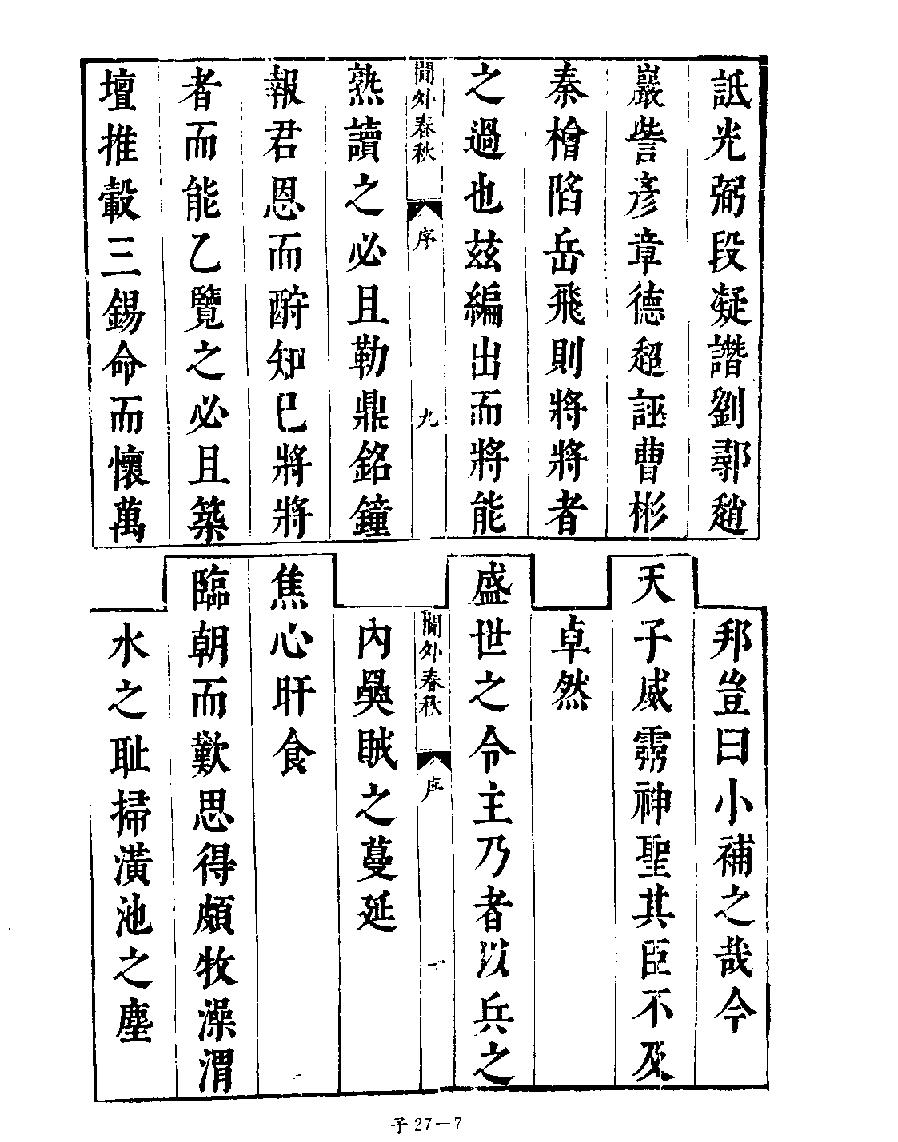 詆光弼段凝譖劉鄩趙
巖訾彥章德超誣曹彬
秦檜陷岳飛則將將者
之過也茲編出而將能
閫外春秋 序 九
熟讀之必且勒鼎銘鐘
報君恩而酧知已將將
者而能乙覽之必且築
壇推轂三錫命而懷萬
邦豈曰小補之哉今
天子威霛神聖其臣不及
卓然
盛世之令主乃者以兵之
閫外春秋 序
內奰賊之蔓延
焦心旰食
臨朝而歎思得頗牧澡渭
水之耻掃潢池之塵
子27—7